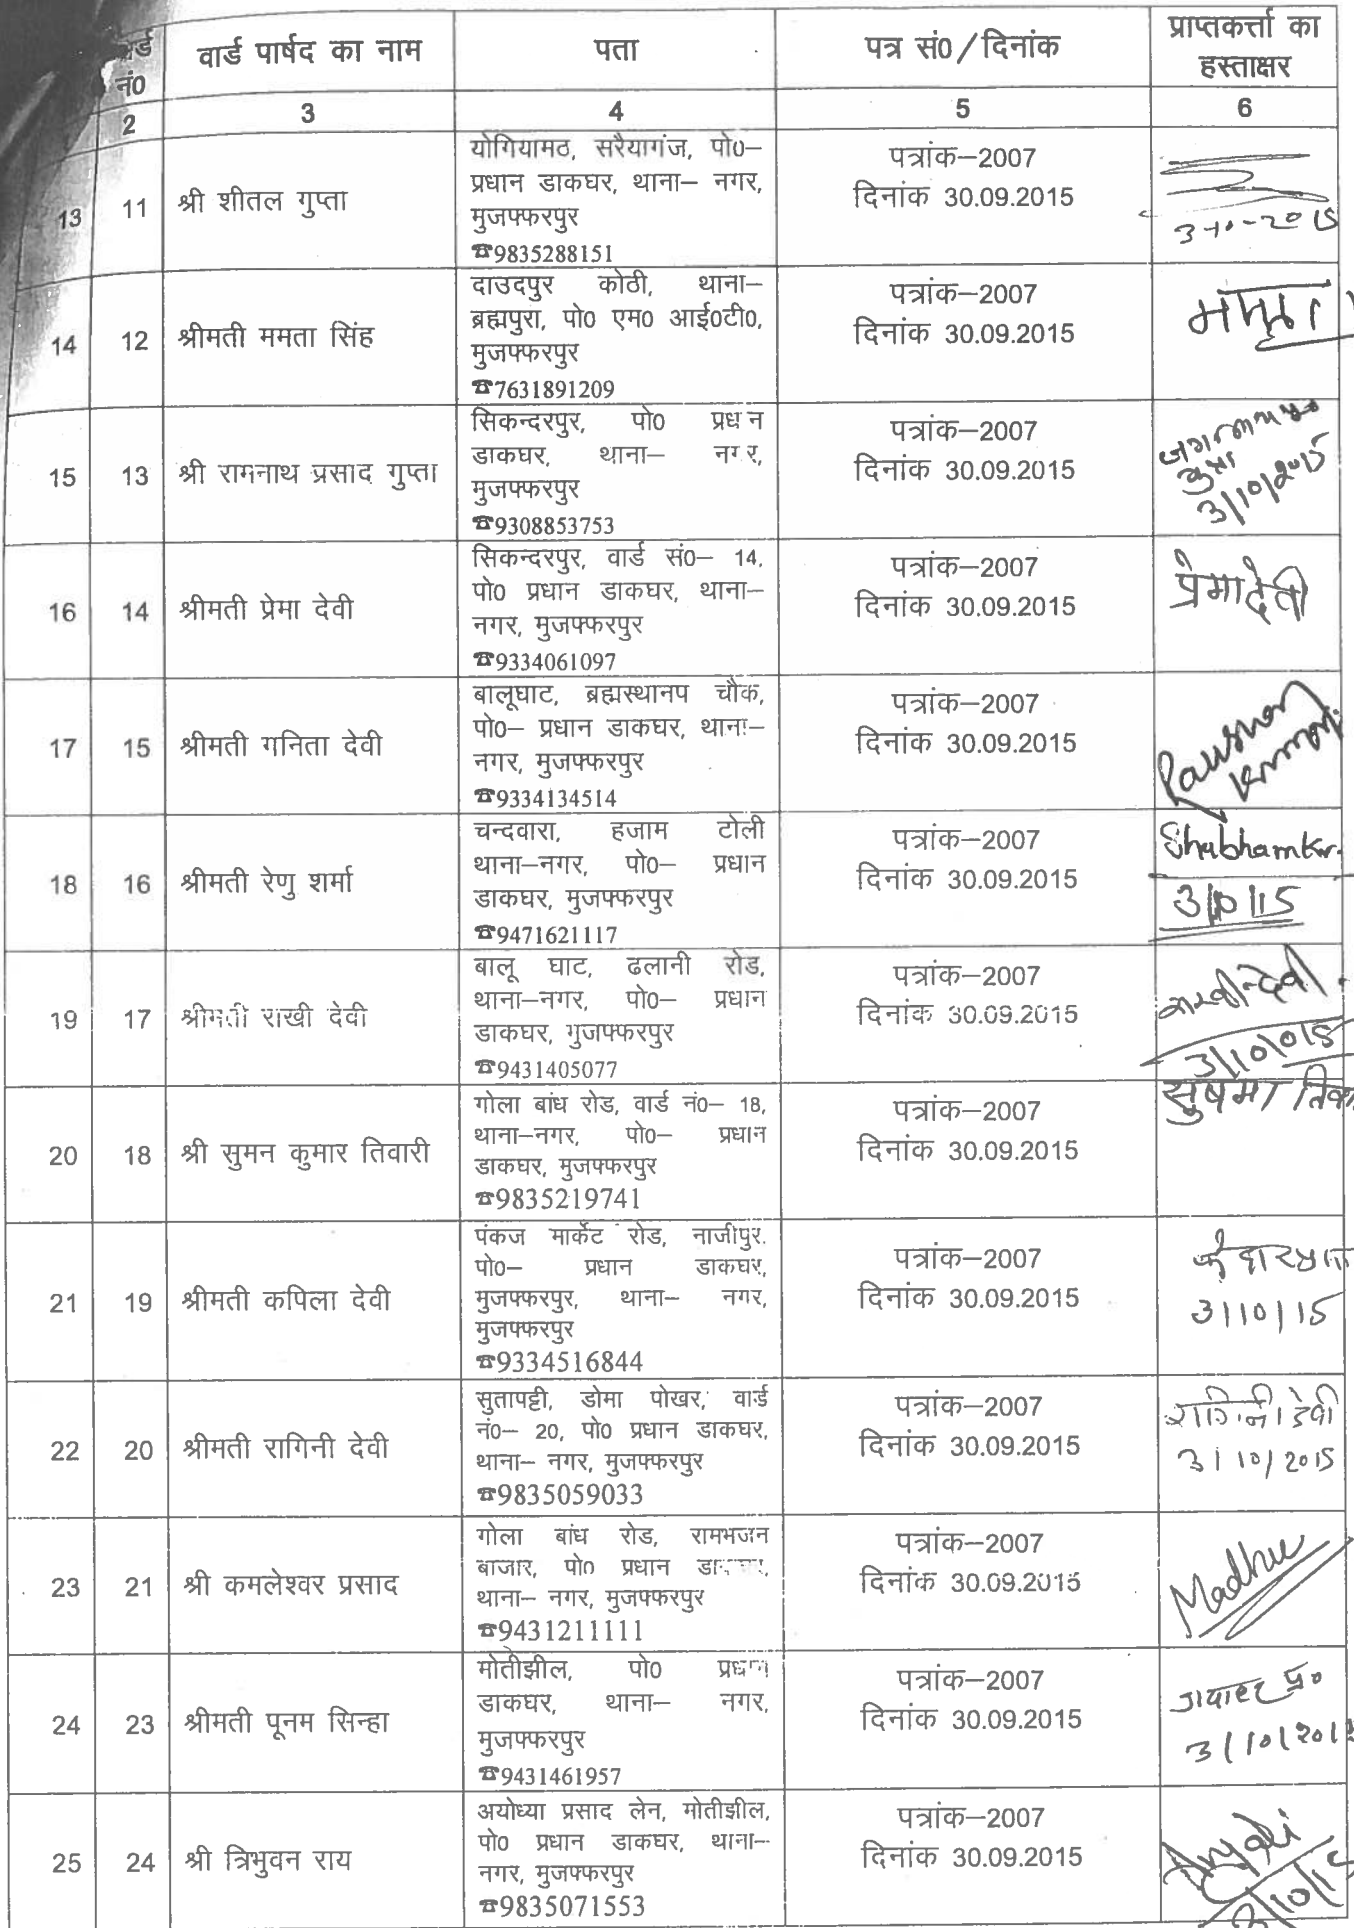 नं0
वार्ड पार्षद का नाम
पता
पत्र सं0/दिनांक
प्राप्तकर्त्ता का
हस्ताक्षर
2
3
4
5
6
13
11
श्री शीतल गुप्ता
योगियामठ, सरैयागंज, पो0–
प्रधान डाकघर, थाना– नगर,
मुजफ्फरपुर
☎9835288151
पत्रांक–2007
दिनांक 30.09.2015
14
12
श्रीमती ममता सिंह
दाउदपुर कोठी, थाना–
ब्रह्मपुरा, पो0 एम0 आई0टी0,
मुजफ्फरपुर
☎7631891209
पत्रांक–2007
दिनांक 30.09.2015
15
13
श्री रामनाथ प्रसाद गुप्ता
सिकन्दरपुर, पो0 प्रधान
डाकघर, थाना– नगर,
मुजफ्फरपुर
☎9308853753
पत्रांक–2007
दिनांक 30.09.2015
3/10/2015
16
14
श्रीमती प्रेमा देवी
सिकन्दरपुर, वार्ड सं0– 14,
पो0 प्रधान डाकघर, थाना–
नगर, मुजफ्फरपुर
☎9334061097
पत्रांक–2007
दिनांक 30.09.2015
प्रेमा देवी
17
15
श्रीमती गनिता देवी
बालूघाट, ब्रह्मस्थानप चौक,
पो0– प्रधान डाकघर, थाना–
नगर, मुजफ्फरपुर
☎9334134514
पत्रांक–2007
दिनांक 30.09.2015
18
16
श्रीमती रेणु शर्मा
चन्दवारा, हजाम टोली
थाना–नगर, पो0– प्रधान
डाकघर, मुजफ्फरपुर
☎9471621117
पत्रांक–2007
दिनांक 30.09.2015
Shubham Kr.
3/10/15
19
17
श्रीमती राखी देवी
बालू घाट, ढलानी रोड,
थाना–नगर, पो0– प्रधान
डाकघर, गुजफ्फरपुर
☎9431405077
पत्रांक–2007
दिनांक 30.09.2015
राखी देवी
20
18
श्री सुमन कुमार तिवारी
गोला बांध रोड, वार्ड नं0– 18,
थाना–नगर, पो0– प्रधान
डाकघर, मुजफ्फरपुर
☎9835219741
पत्रांक–2007
दिनांक 30.09.2015
सुषमा
21
19
श्रीमती कपिला देवी
पंकज मार्केट रोड, नाजीपुर,
पो0– प्रधान डाकघर,
मुजफ्फरपुर, थाना– नगर,
मुजफ्फरपुर
☎9334516844
पत्रांक–2007
दिनांक 30.09.2015
3/10/15
22
20
श्रीमती रागिनी देवी
सुतापट्टी, डोमा पोखर, वार्ड
नं0– 20, पो0 प्रधान डाकघर,
थाना– नगर, मुजफ्फरपुर
☎9835059033
पत्रांक–2007
दिनांक 30.09.2015
रागिनी देवी
3/10/2015
23
21
श्री कमलेश्वर प्रसाद
गोला बांध रोड, रामभजन
बाजार, पो0 प्रधान डाकघर,
थाना– नगर, मुजफ्फरपुर
☎9431211111
पत्रांक–2007
दिनांक 30.09.2015
Madhu
24
23
श्रीमती पूनम सिन्हा
मोतीझील, पो0 प्रधान
डाकघर, थाना– नगर,
मुजफ्फरपुर
☎9431461957
पत्रांक–2007
दिनांक 30.09.2015
25
24
श्री त्रिभुवन राय
अयोध्या प्रसाद लेन, मोतीझील,
पो0 प्रधान डाकघर, थाना–
नगर, मुजफ्फरपुर
☎9835071553
पत्रांक–2007
दिनांक 30.09.2015